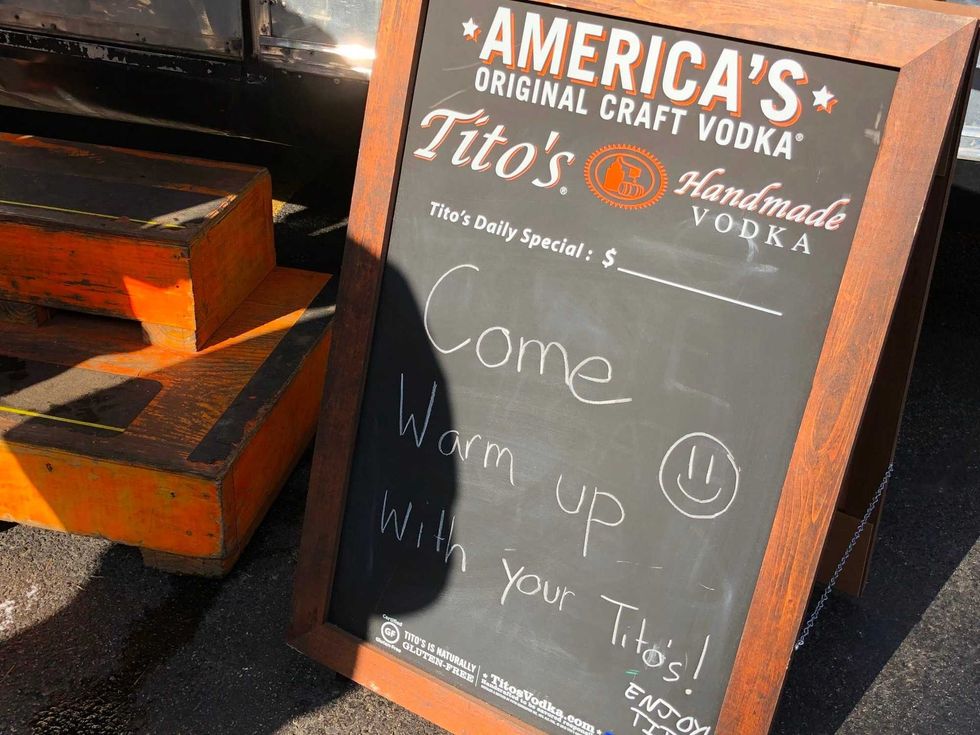 AMERICA'S
ORIGINAL CRAFT VODKA®
Tito's® Handmade
VODKA
Tito's Daily Special: $
Come
Warm up
With your Tito's!
ENJOY
Certified
GF
Gluten-Free
TITO'S IS NATURALLY
GLUTEN-FREE
TitosVodka.com
Handcrafted to be savored responsibly